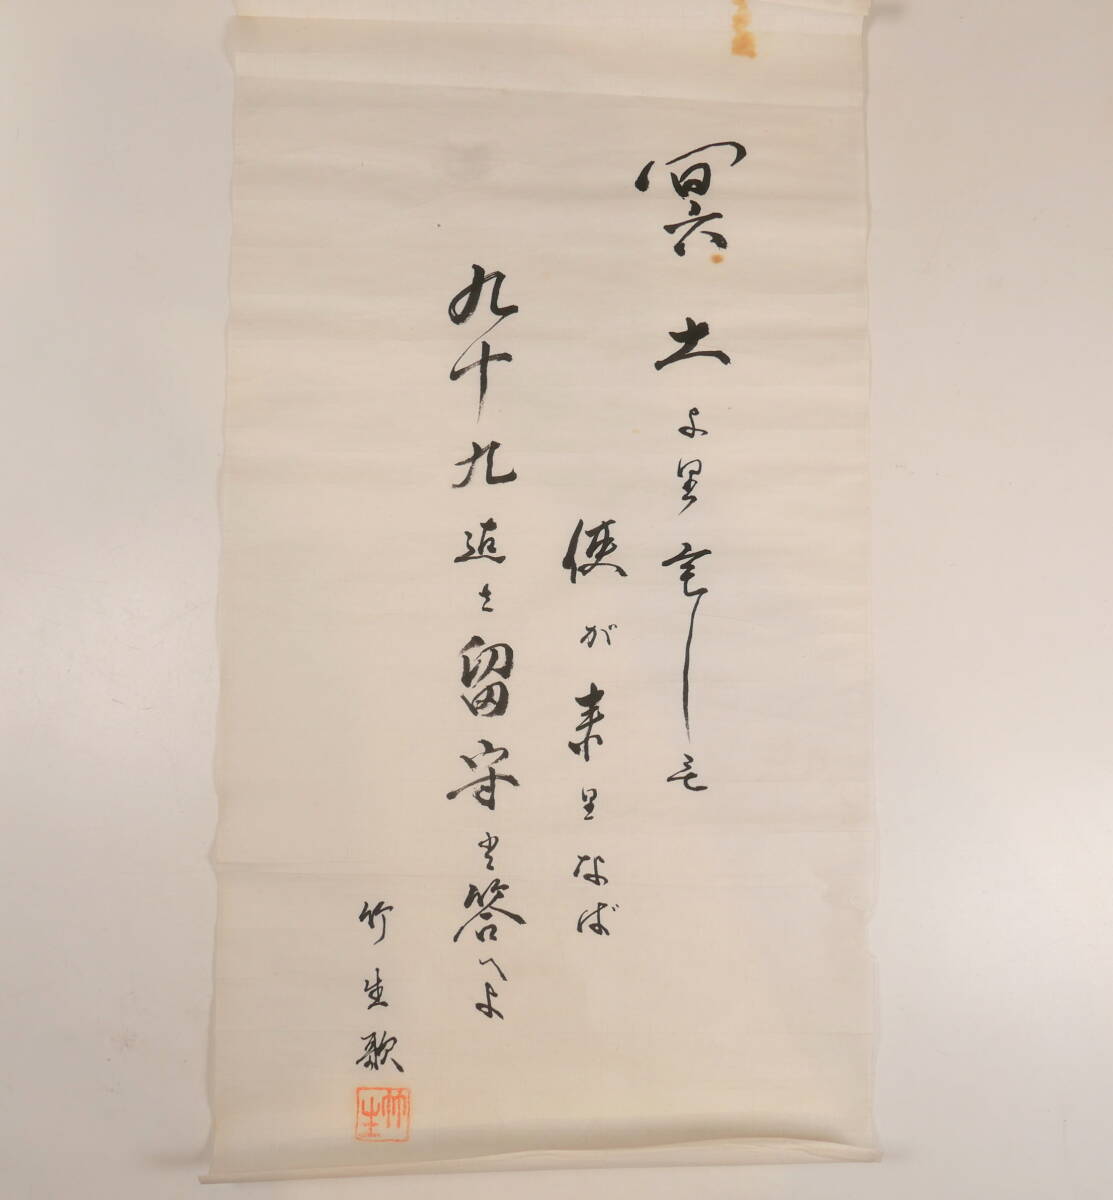 冥土よ里もしも
使が来里なば
九十九迄は留守と答へよ
竹生歌
竹生